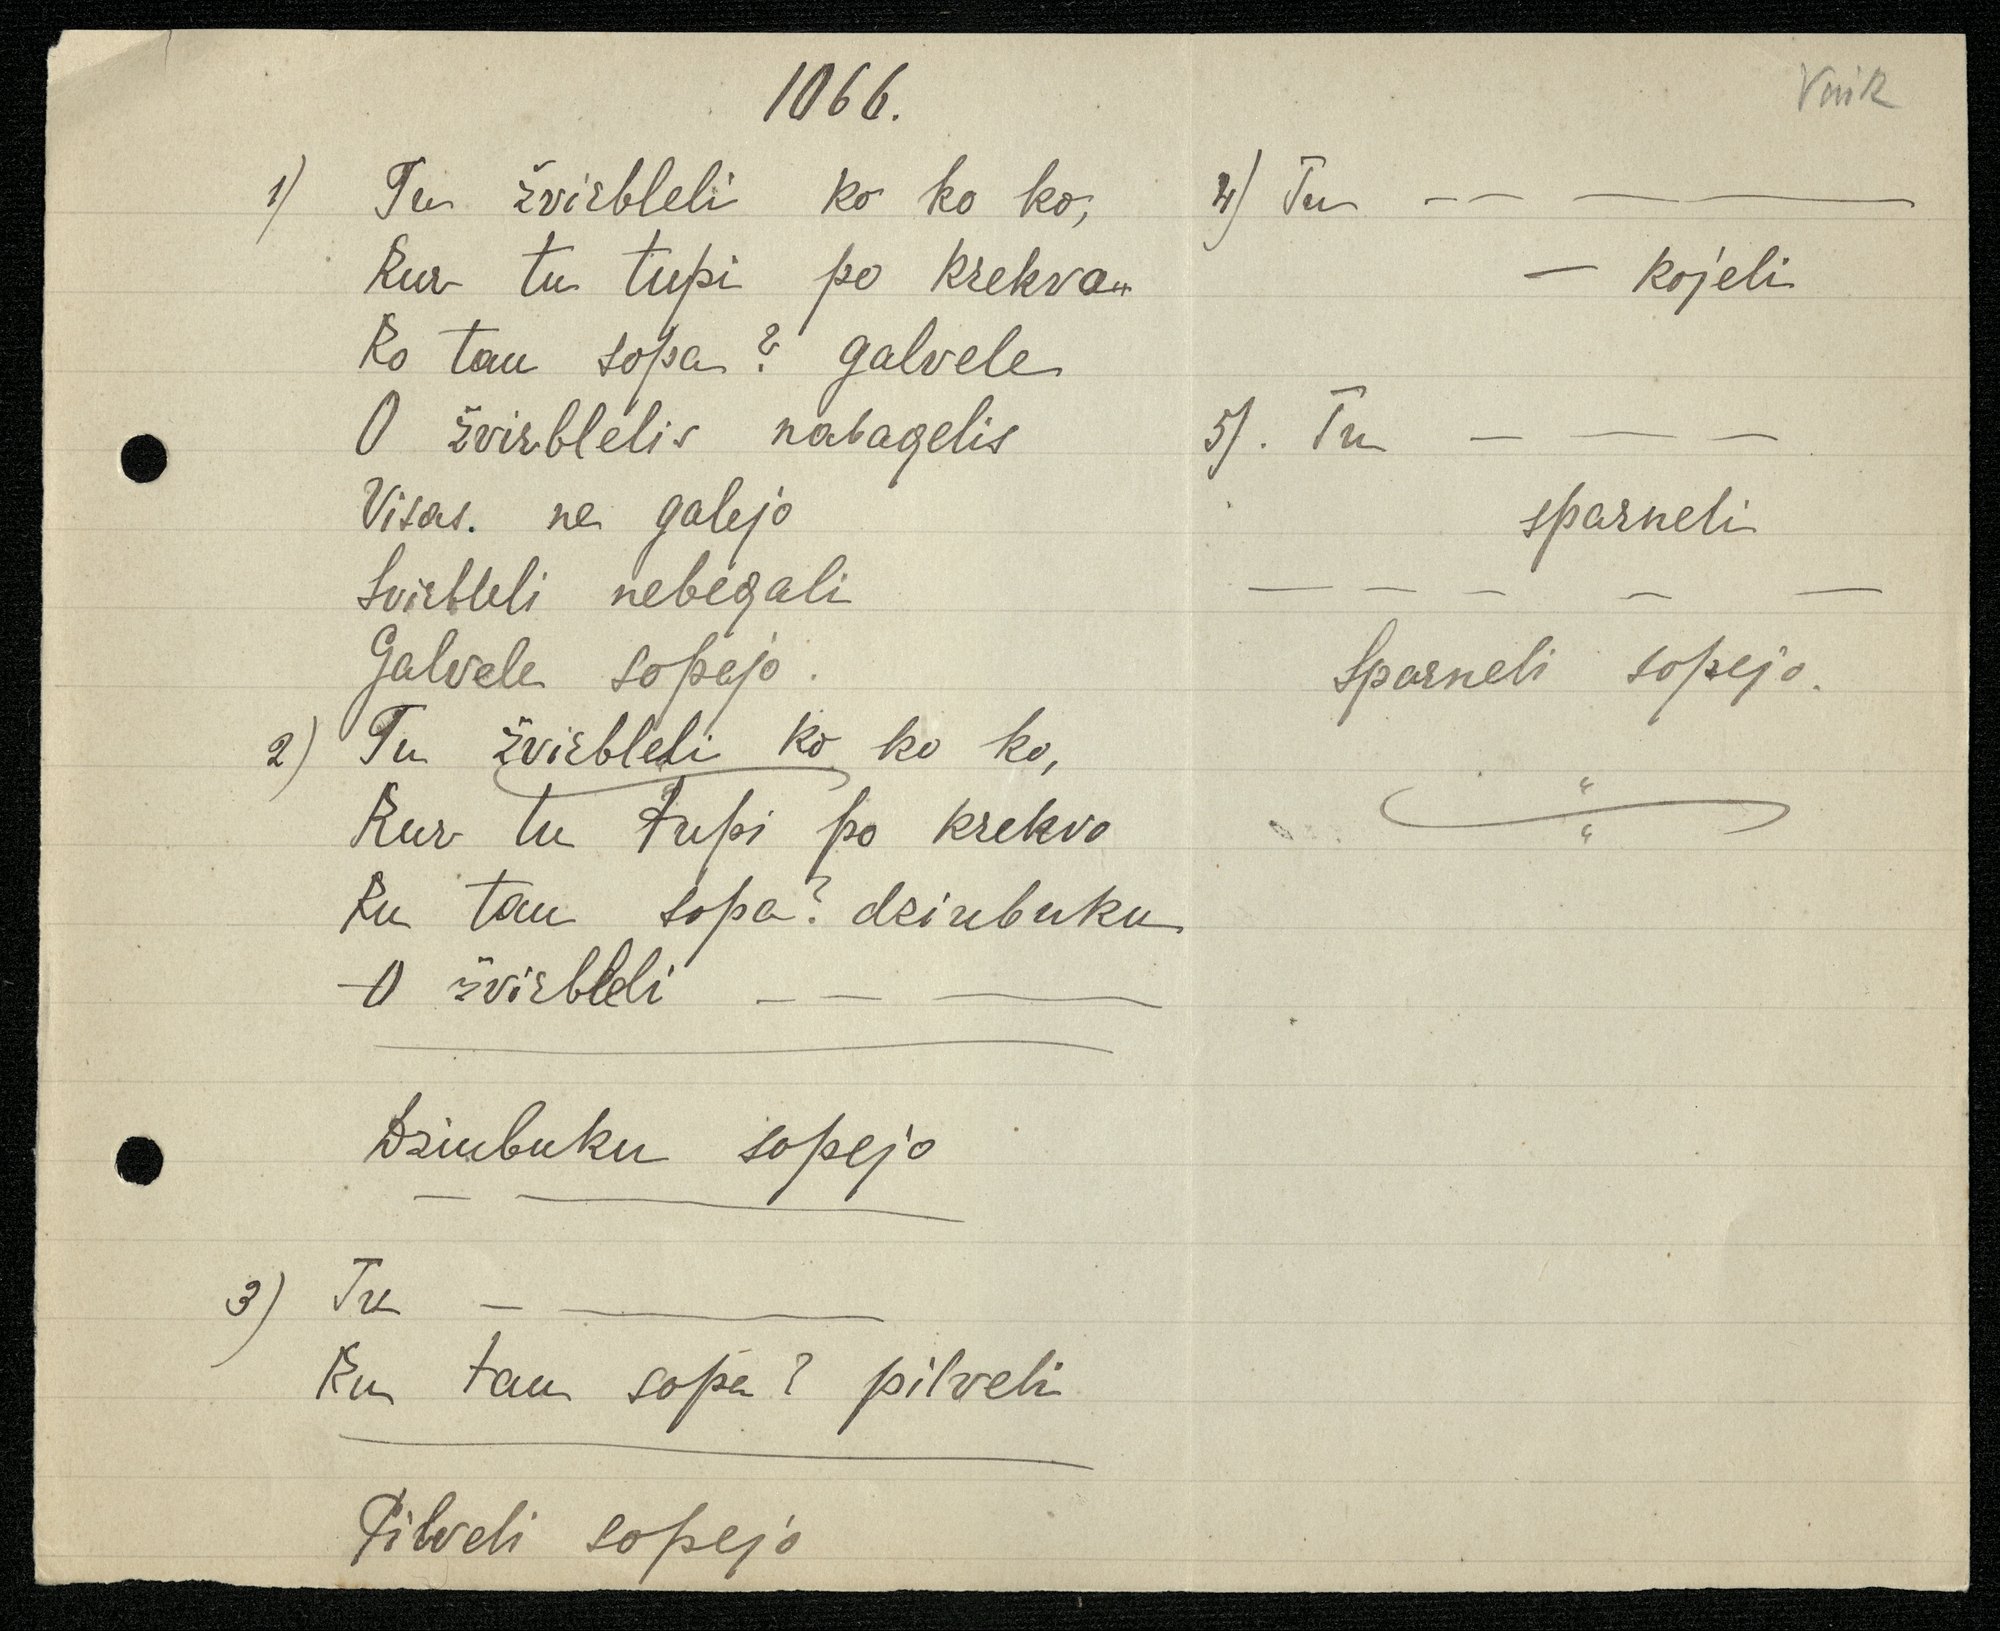 1066.
Vaik
1) Tu žvirbleli ko ko ko,
Kur tu tupi po krekva"
Ko tau sopa? galvele
O žvirblelis nabagelis
Visas. ne galejo
Svirbleli nebegali
Galvele sopejo.
2) Tu žvirbleli ko ko ko,
Kur tu tupi po krekvo
Ku tau sopa? dziubuku
O žvirbleli — — —
Dziubuku sopejo
3) Tu — —
Ku tau sopa? pilveli
Pilveli sopejo
4) Tu — — — —
— kojeli
5). Tu — — —
sparneli
— — — — —
Sparneli sopejo.